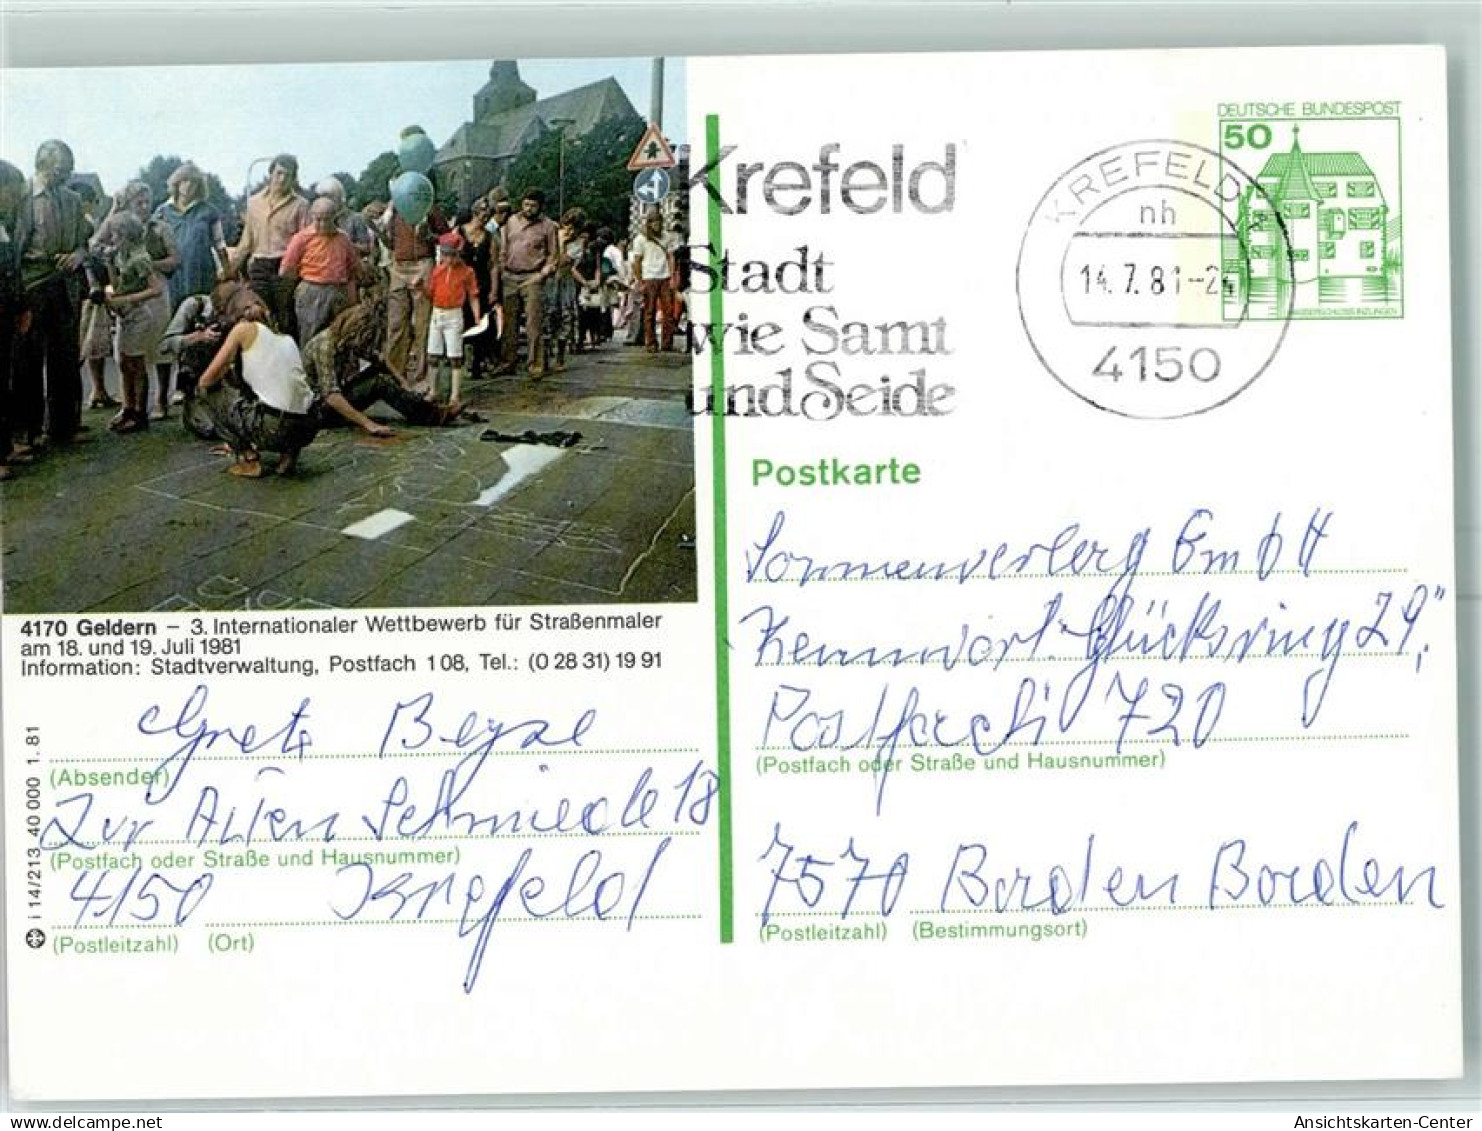 DEUTSCHE BUNDESPOST
50
WASSERSCHLOSS INZLINGEN
KREFELD 1
nh
14.7.81-24
4150
Krefeld
Stadt
wie Samt
und Seide
Postkarte
4170 Geldern – 3. Internationaler Wettbewerb für Straßenmaler
am 18. und 19. Juli 1981
Information: Stadtverwaltung, Postfach 1 08, Tel.: (0 28 31) 19 91
Grete Beyse
(Absender)
Zur Alten Schmiede 18
(Postfach oder Straße und Hausnummer)
4150 Krefeld
(Postleitzahl) (Ort)
i 14/213 40 000 1. 81
Sonnenverlag GmbH
Kennwort: Glücksring 29,"
Postfach 720
(Postfach oder Straße und Hausnummer)
7570 Baden Baden
(Postleitzahl) (Bestimmungsort)
Ansichtskarten-Center